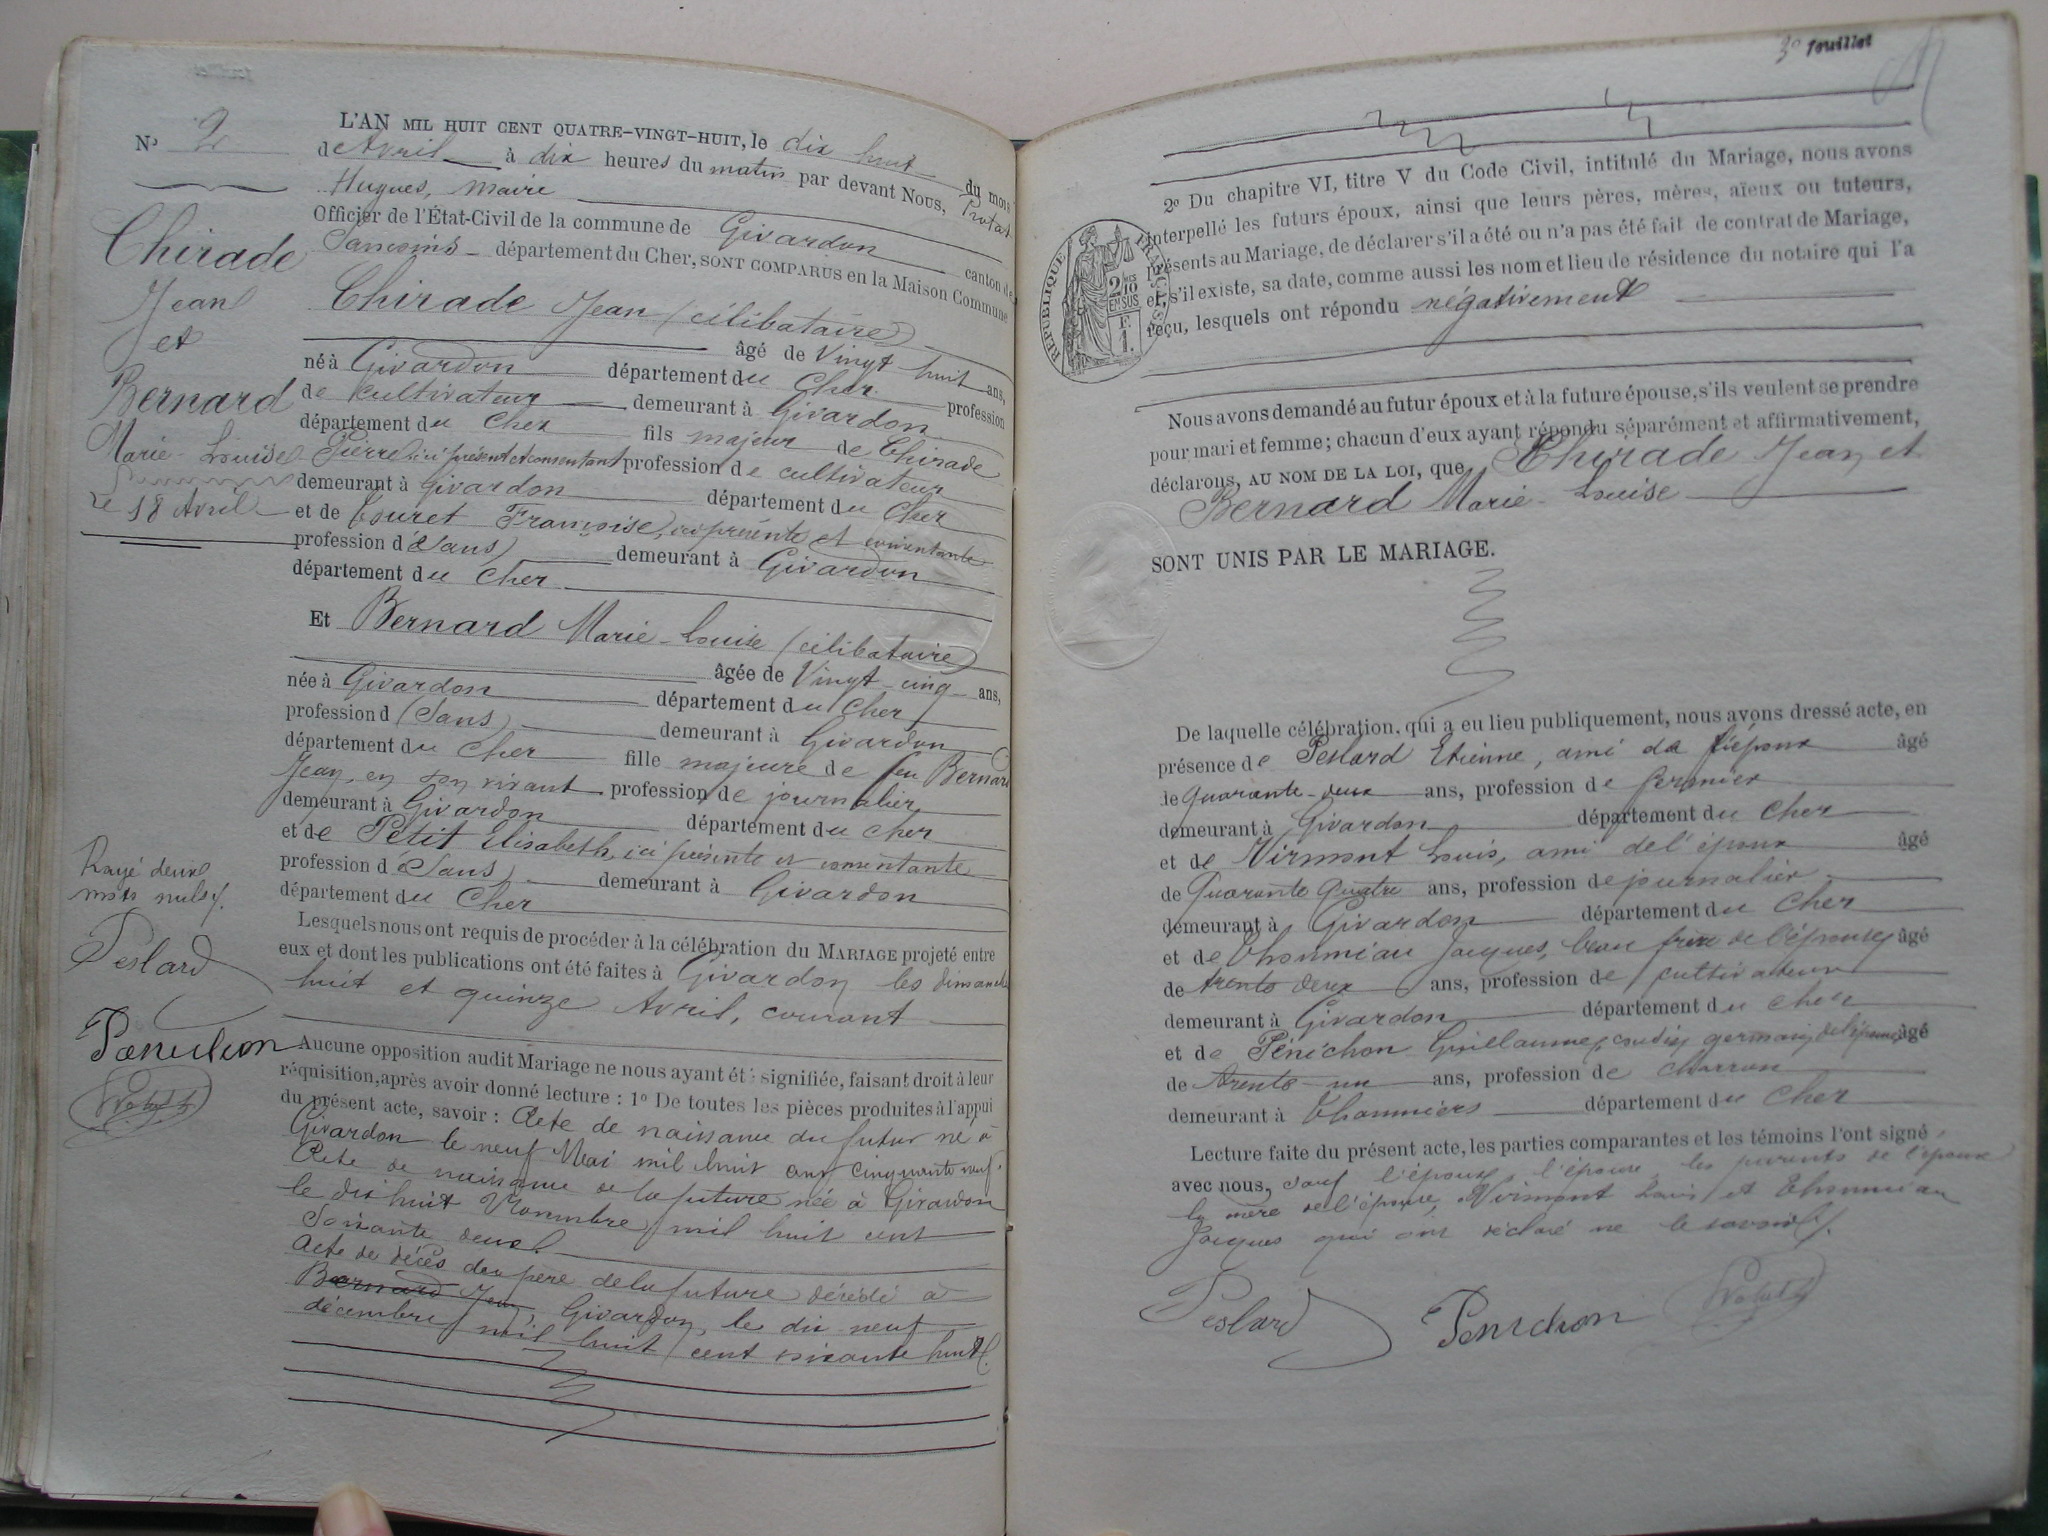 N° 2
Chirade
Jean
et
Bernard
Marie-Louise
Le 18 Avril
L'AN MIL HUIT CENT QUATRE-VINGT-HUIT, le dix huit du mois
de Avril à dix heures du matin par devant Nous, Protat
Hugues, maire
Officier de l'État-Civil de la commune de Givardon canton de
Sancoins département du Cher, SONT COMPARUS en la Maison Commune
Chirade Jean (célibataire)
âgé de Vingt huit ans,
né à Givardon département du Cher profession
de cultivateur demeurant à Givardon
département du Cher fils majeur de Chirade
Pierre ici présent et consentant profession de cultivateur
demeurant à Givardon département du Cher
et de Touret Françoise, ici présente et consentante
profession d (Sans) demeurant à Givardon
département du Cher
Et Bernard Marie-Louise (célibataire)
âgée de Vingt-cinq ans,
née à Givardon département du Cher
profession d (Sans) demeurant à Givardon
département du Cher fille majeure de feu Bernard
Jean, en son vivant profession de journalier
demeurant à Givardon département du Cher
et de Petit Elisabeth, ici présente et consentante
profession d (Sans) demeurant à Givardon
département du Cher
Lesquels nous ont requis de procéder à la célébration du MARIAGE projeté entre
eux et dont les publications ont été faites à Givardon les dimanches
huit et quinze Avril, courant
Aucune opposition audit Mariage ne nous ayant été signifiée, faisant droit à leur
réquisition, après avoir donné lecture : 1° De toutes les pièces produites à l'appui
du présent acte, savoir : Acte de naissance du futur né à
Givardon le neuf Mai mil huit cent cinquante neuf.
Acte de naissance de la future née à Givardon
le dix huit Novembre mil huit cent
Soixante deux.
Acte de décès du père de la future décédé à
Bernard Jean, Givardon, le dix neuf
décembre mil huit cent soixante huit.
Rayé deux
mots nuls.
Peslard
Penichon
3e feuillet
2° Du chapitre VI, titre V du Code Civil, intitulé du Mariage, nous avons
interpellé les futurs époux, ainsi que leurs pères, mères, aïeux ou tuteurs,
présents au Mariage, de déclarer s'il a été ou n'a pas été fait de contrat de Mariage,
et, s'il existe, sa date, comme aussi les nom et lieu de résidence du notaire qui l'a
reçu, lesquels ont répondu négativement
RÉPUBLIQUE FRANÇAISE
2/10
EN SUS
F.
1.
Nous avons demandé au futur époux et à la future épouse, s'ils veulent se prendre
pour mari et femme ; chacun d'eux ayant répondu séparément et affirmativement,
déclarons, AU NOM DE LA LOI, que Chirade Jean et
Bernard Marie-Louise
SONT UNIS PAR LE MARIAGE.
De laquelle célébration, qui a eu lieu publiquement, nous avons dressé acte, en
présence de Peslard Etienne, ami de l'époux âgé
de quarante-deux ans, profession de fermier
demeurant à Givardon département du Cher
et de Virmont Louis, ami de l'époux âgé
de Quarante Quatre ans, profession de journalier
demeurant à Givardon département du Cher
et de Thoumieau Jacques, beau frère de l'épouse âgé
de trente deux ans, profession de cultivateur
demeurant à Givardon département du Cher
et de Pénichon Guillaume, cousin germain de l'épouse âgé
de trente-un ans, profession de charron
demeurant à Thaumiers département du Cher
Lecture faite du présent acte, les parties comparantes et les témoins l'ont signé
avec nous, sauf l'époux, l'épouse, les parents de l'époux
la mère de l'épouse, Virmont Louis et Thoumieau
Jacques qui ont déclaré ne le savoir.
Peslard Penichon